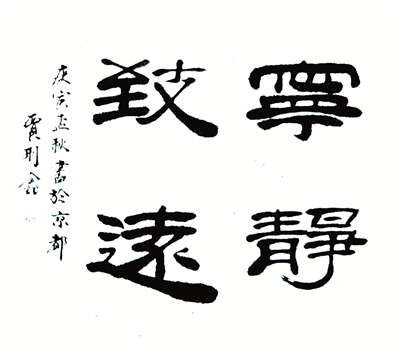 寧靜
致遠
庚寅孟秋書於京都
賈